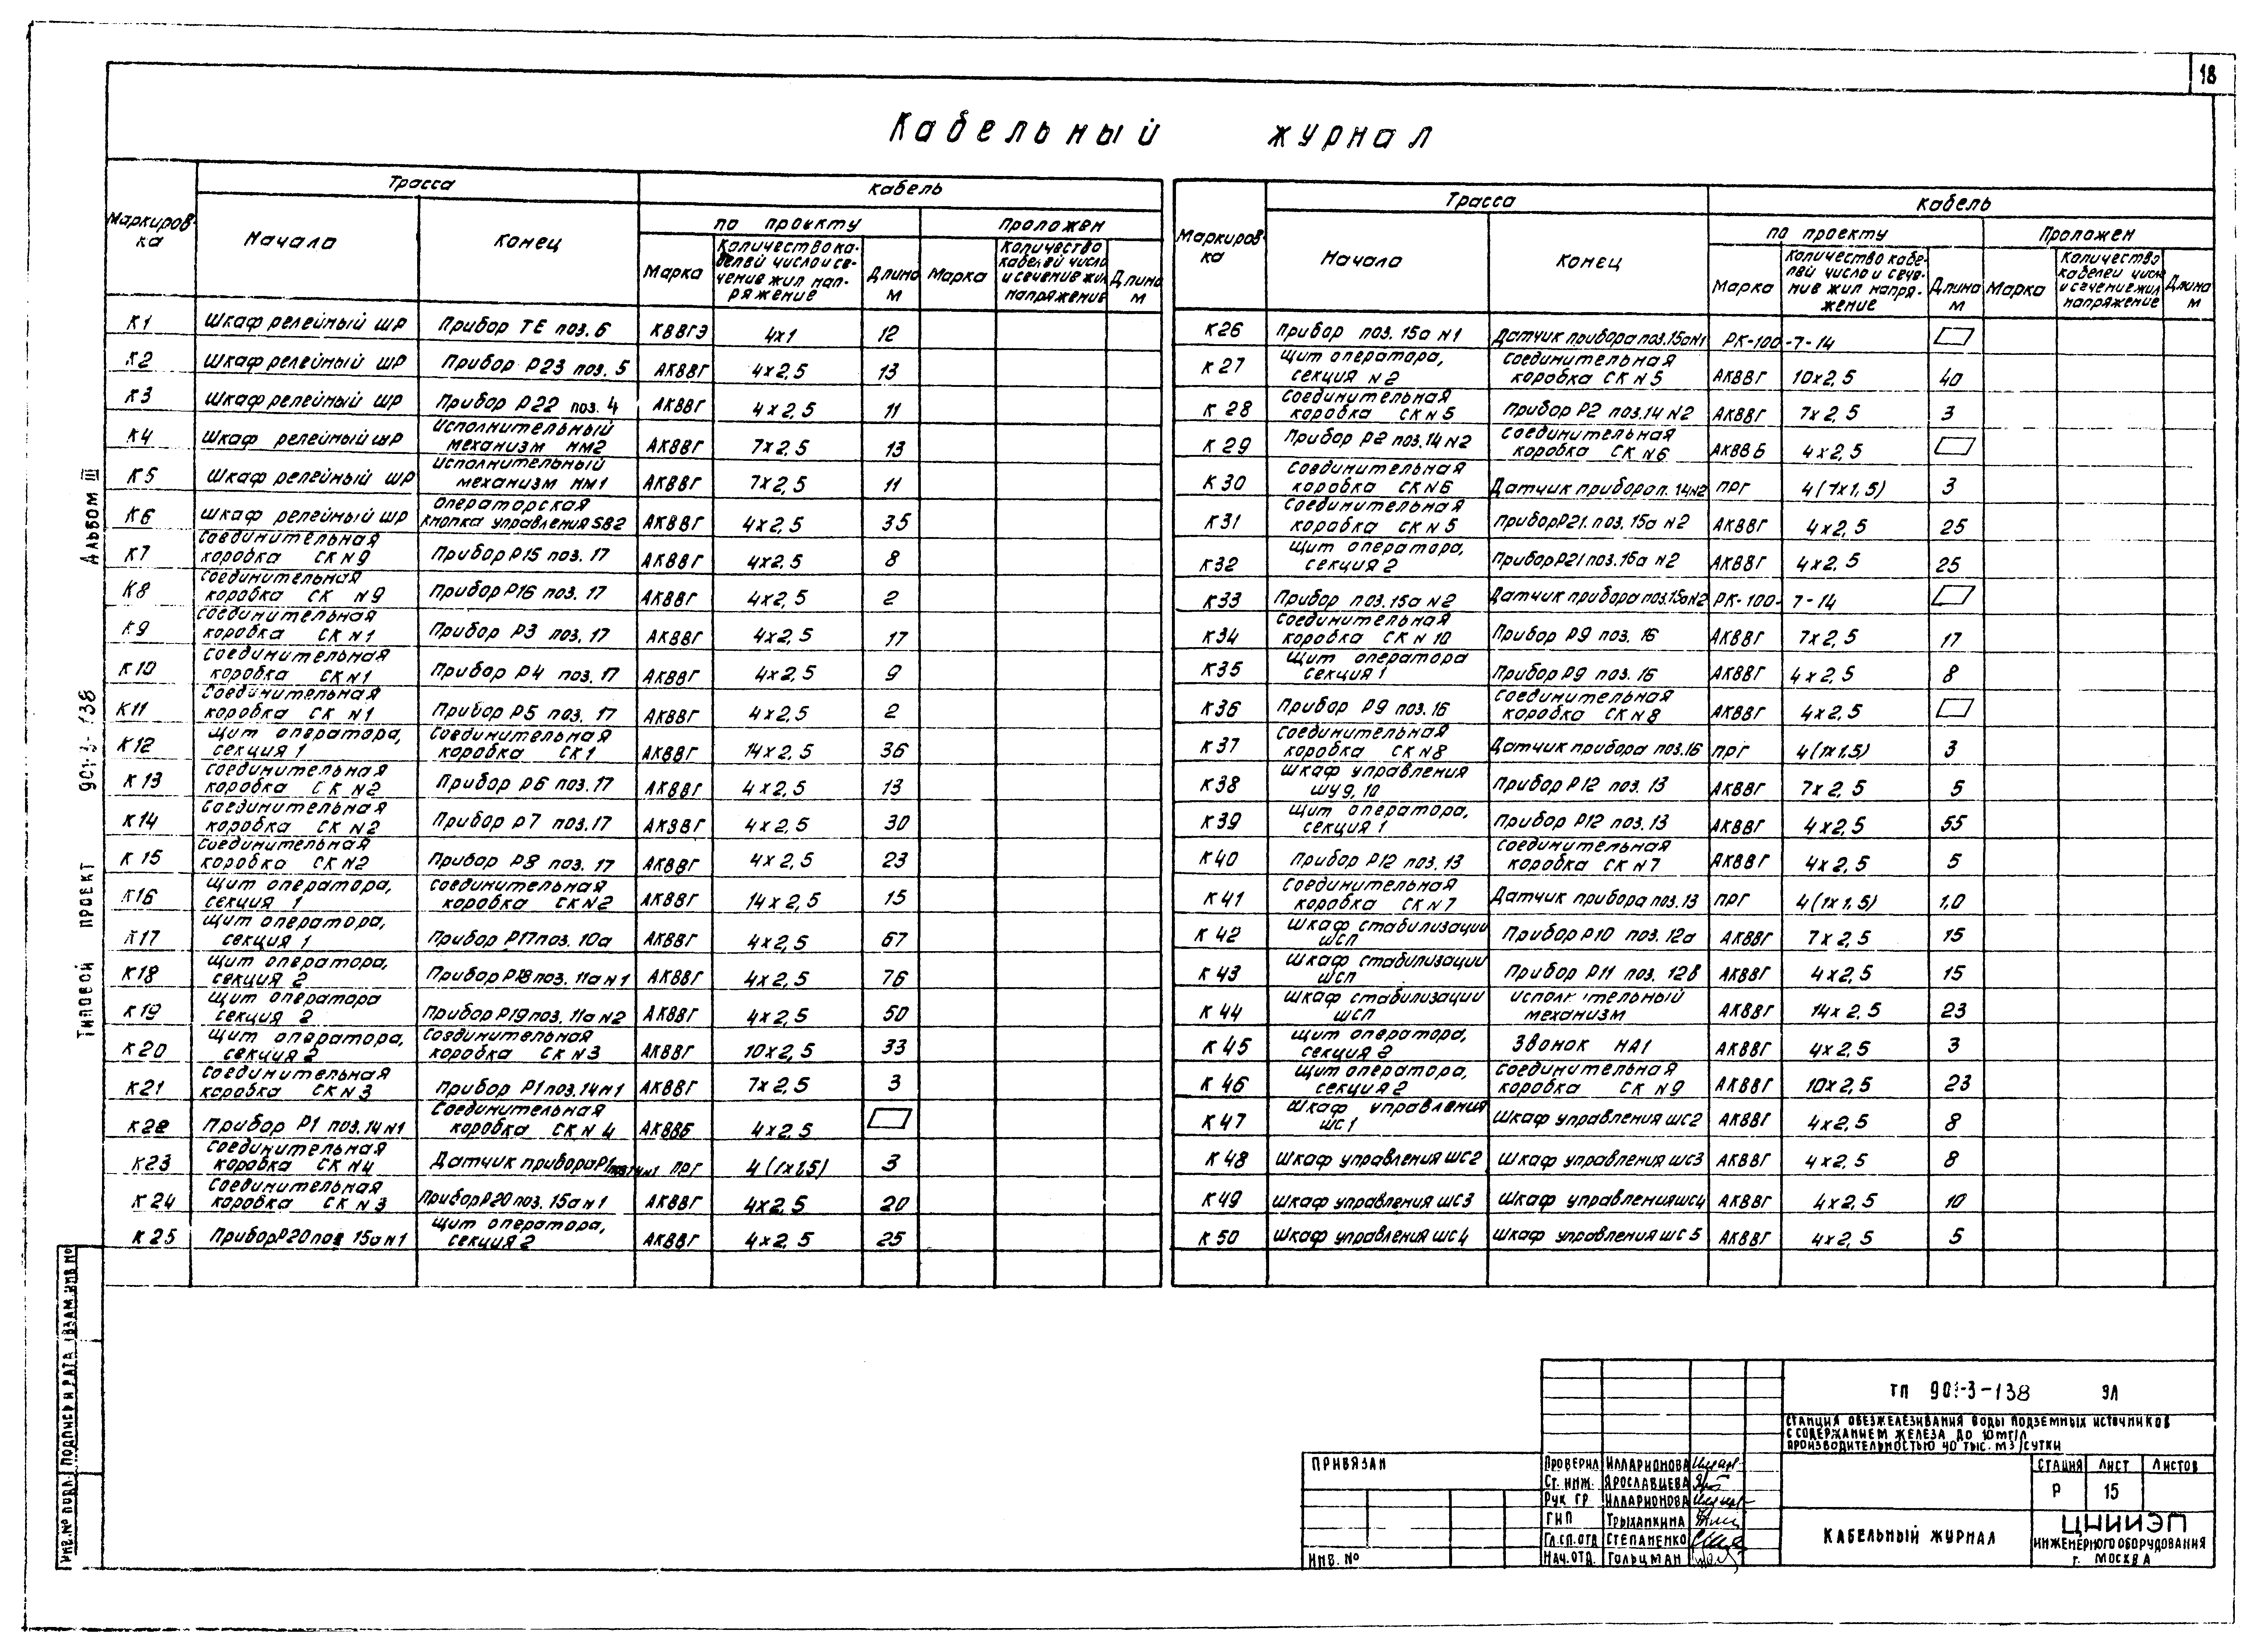 18
Кабельный журнал
Маркировка Трасса Кабель
Начало Конец по проекту Проложен
Марка Количество кабелей число и сечение жил напряжение Длина м Марка Количество кабелей число и сечение жил напряжение Длина м
К1 Шкаф релейный ШР Прибор ТЕ поз. 6 КВВГЭ 4х1 12
К2 Шкаф релейный ШР Прибор Р23 поз. 5 АКВВГ 4х2,5 13
К3 Шкаф релейный ШР Прибор Р22 поз. 4 АКВВГ 4х2,5 11
К4 Шкаф релейный ШР Исполнительный механизм ИМ2 АКВВГ 7х2,5 13
К5 Шкаф релейный ШР Исполнительный механизм ИМ1 АКВВГ 7х2,5 11
К6 Шкаф релейный ШР Операторская кнопка управления SB2 АКВВГ 4х2,5 35
К7 Соединительная коробка СК N9 Прибор Р15 поз. 17 АКВВГ 4х2,5 8
К8 Соединительная коробка СК N9 Прибор Р16 поз. 17 АКВВГ 4х2,5 2
К9 Соединительная коробка СК N1 Прибор Р3 поз. 17 АКВВГ 4х2,5 17
К10 Соединительная коробка СК N1 Прибор Р4 поз. 17 АКВВГ 4х2,5 9
К11 Соединительная коробка СК N1 Прибор Р5 поз. 17 АКВВГ 4х2,5 2
К12 Щит оператора, секция 1 Соединительная коробка СК1 АКВВГ 14х2,5 36
К13 Соединительная коробка СК N2 Прибор Р6 поз. 17 АКВВГ 4х2,5 13
К14 Соединительная коробка СК N2 Прибор Р7 поз. 17 АКВВГ 4х2,5 30
К15 Соединительная коробка СК N2 Прибор Р8 поз. 17 АКВВГ 4х2,5 23
К16 Щит оператора, секция 1 Соединительная коробка СК N2 АКВВГ 14х2,5 15
К17 Щит оператора, секция 1 Прибор Р17 поз. 10а АКВВГ 4х2,5 67
К18 Щит оператора, секция 2 Прибор Р18 поз. 11а N1 АКВВГ 4х2,5 76
К19 Щит оператора секция 2 Прибор Р19 поз. 11а N2 АКВВГ 4х2,5 50
К20 Щит оператора, секция 2 Соединительная коробка СК N3 АКВВГ 10х2,5 33
К21 Соединительная коробка СК N3 Прибор Р1 поз. 14 N1 АКВВГ 7х2,5 3
К22 Прибор Р1 поз. 14 N1 Соединительная коробка СК N4 АКВВБ 4х2,5
К23 Соединительная коробка СК N4 Датчик прибора Р1 поз. 14 N1 ПРГ 4(1х1,5) 3
К24 Соединительная коробка СК N3 Прибор Р20 поз. 15а N1 АКВВГ 4х2,5 20
К25 Прибор Р20 поз 15а N1 Щит оператора, секция 2 АКВВГ 4х2,5 25
Маркировка Трасса Кабель
Начало Конец по проекту Проложен
Марка Количество кабелей число и сечение жил напряжение Длина м Марка Количество кабелей число и сечение жил напряжение Длина м
К26 Прибор поз. 15а N1 Датчик прибора поз. 15а N1 РК-100-7-14
К27 Щит оператора, секция N2 Соединительная коробка СК N5 АКВВГ 10х2,5 40
К28 Соединительная коробка СК N5 Прибор Р2 поз. 14 N2 АКВВГ 7х2,5 3
К29 Прибор Р2 поз. 14 N2 Соединительная коробка СК N6 АКВВБ 4х2,5
К30 Соединительная коробка СК N6 Датчик прибора п. 14 N2 ПРГ 4(1х1,5) 3
К31 Соединительная коробка СК N5 Прибор Р21. поз. 15а N2 АКВВГ 4х2,5 25
К32 Щит оператора, секция 2 Прибор Р21 поз. 15а N2 АКВВГ 4х2,5 25
К33 Прибор поз. 15а N2 Датчик прибора поз. 15а N2 РК-100-7-14
К34 Соединительная коробка СК N 10 Прибор Р9 поз. 16 АКВВГ 7х2,5 17
К35 Щит оператора секция 1 Прибор Р9 поз. 16 АКВВГ 4х2,5 8
К36 Прибор Р9 поз. 16 Соединительная коробка СК N8 АКВВГ 4х2,5
К37 Соединительная коробка СК N8 Датчик прибора поз. 16 ПРГ 4(1х1.5) 3
К38 Шкаф управления ШУ9,10 Прибор Р12 поз. 13 АКВВГ 7х2,5 5
К39 Щит оператора, секция 1 Прибор Р12 поз. 13 АКВВГ 4х2,5 55
К40 Прибор Р12 поз. 13 Соединительная коробка СК N7 АКВВГ 4х2,5 5
К41 Соединительная коробка СК N7 Датчик прибора поз. 13 ПРГ 4(1х1,5) 1,0
К42 Шкаф стабилизации ШСП Прибор Р10 поз. 12а АКВВГ 7х2,5 15
К43 Шкаф стабилизации ШСП Прибор Р11 поз. 12в АКВВГ 4х2,5 15
К44 Шкаф стабилизации ШСП Исполнительный механизм АКВВГ 14х2,5 23
К45 Щит оператора, секция 2 Звонок НА1 АКВВГ 4х2,5 3
К46 Щит оператора, секция 2 Соединительная коробка СК N9 АКВВГ 10х2,5 23
К47 Шкаф управления ШС1 Шкаф управления ШС2 АКВВГ 4х2,5 8
К48 Шкаф управления ШС2 Шкаф управления ШС3 АКВВГ 4х2,5 8
К49 Шкаф управления ШС3 Шкаф управления ШС4 АКВВГ 4х2,5 10
К50 Шкаф управления ШС4 Шкаф управления ШС5 АКВВГ 4х2,5 5
Типовой проект 901-3-138 Альбом III
Инв.№ подл. Подпись и дата Взам. инв №
Привязан
Инв. №
Проверил Илларионова
Ст. инж. Ярославцева
Рук гр Илларионова
ГИП Трыханкина
Гл.сп.отд Степаненко
Нач.отд. Гольцман
ТП 901-3-138 ЭЛ
Станция обезжелезивания воды подземных источников
с содержанием железа до 10мг/л
производительностью 40 тыс. м3/сутки
Стадия Лист Листов
Р 15
Кабельный журнал
ЦНИИЭП
инженерного оборудования
г. Москва